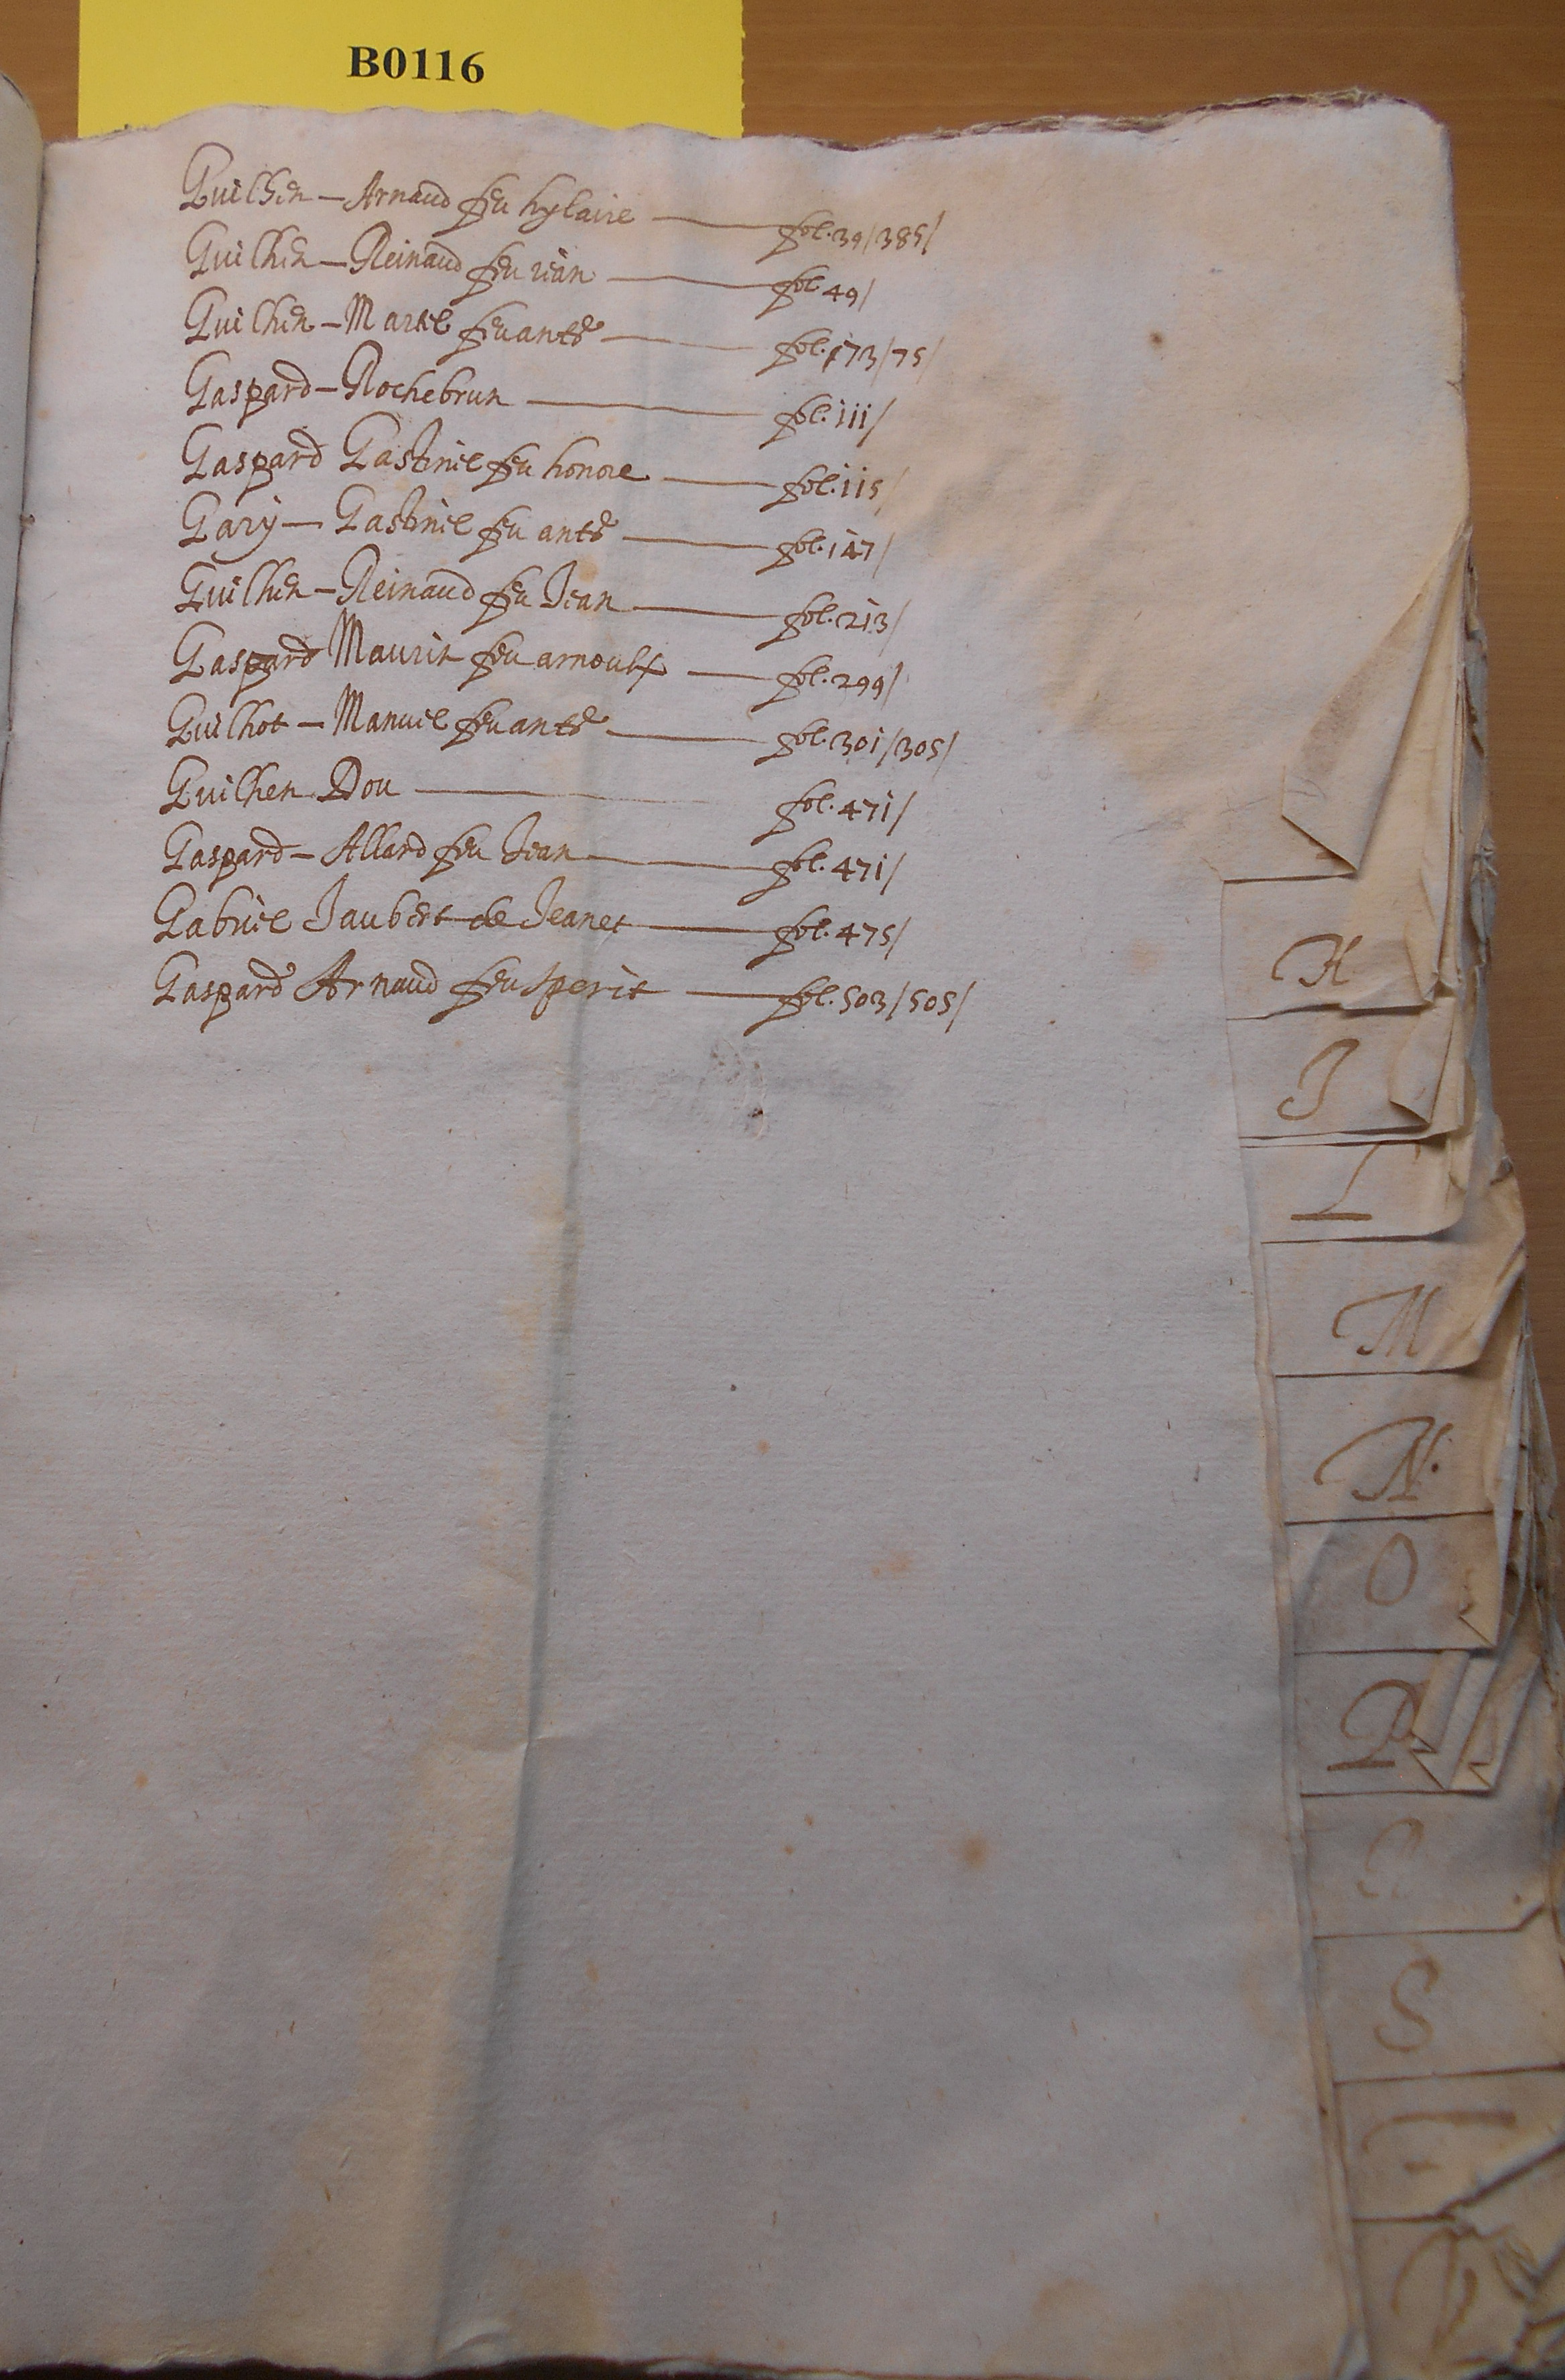 B0116
Guilhen - Arnaud feu hylaire - fol. 39/385/
Guilhen - Reinaud feu iean - fol 49/
Guilhen - Martel feu anthe - fol. 173/75/
Gaspard - Rochebrun - fol. 111/
Gaspard Gastinel feu honore - fol. 115/
Gary - Gastinel feu anthe - fol. 147/
Guilhen - Reinaud feu Jean - fol. 213/
Gaspard Maurin feu arnoulx - fol. 299/
Guilhot - Manuel feu anthe - fol. 301/305/
Guilhen Dou - fol. 471/
Gaspard - Allard feu Jean - fol. 471/
Gabriel Jaubert de Jeanet - fol. 475/
Gaspard Arnaud feu sperit - fol. 503/505/
H
J
L
M
N.
O
P
S
T